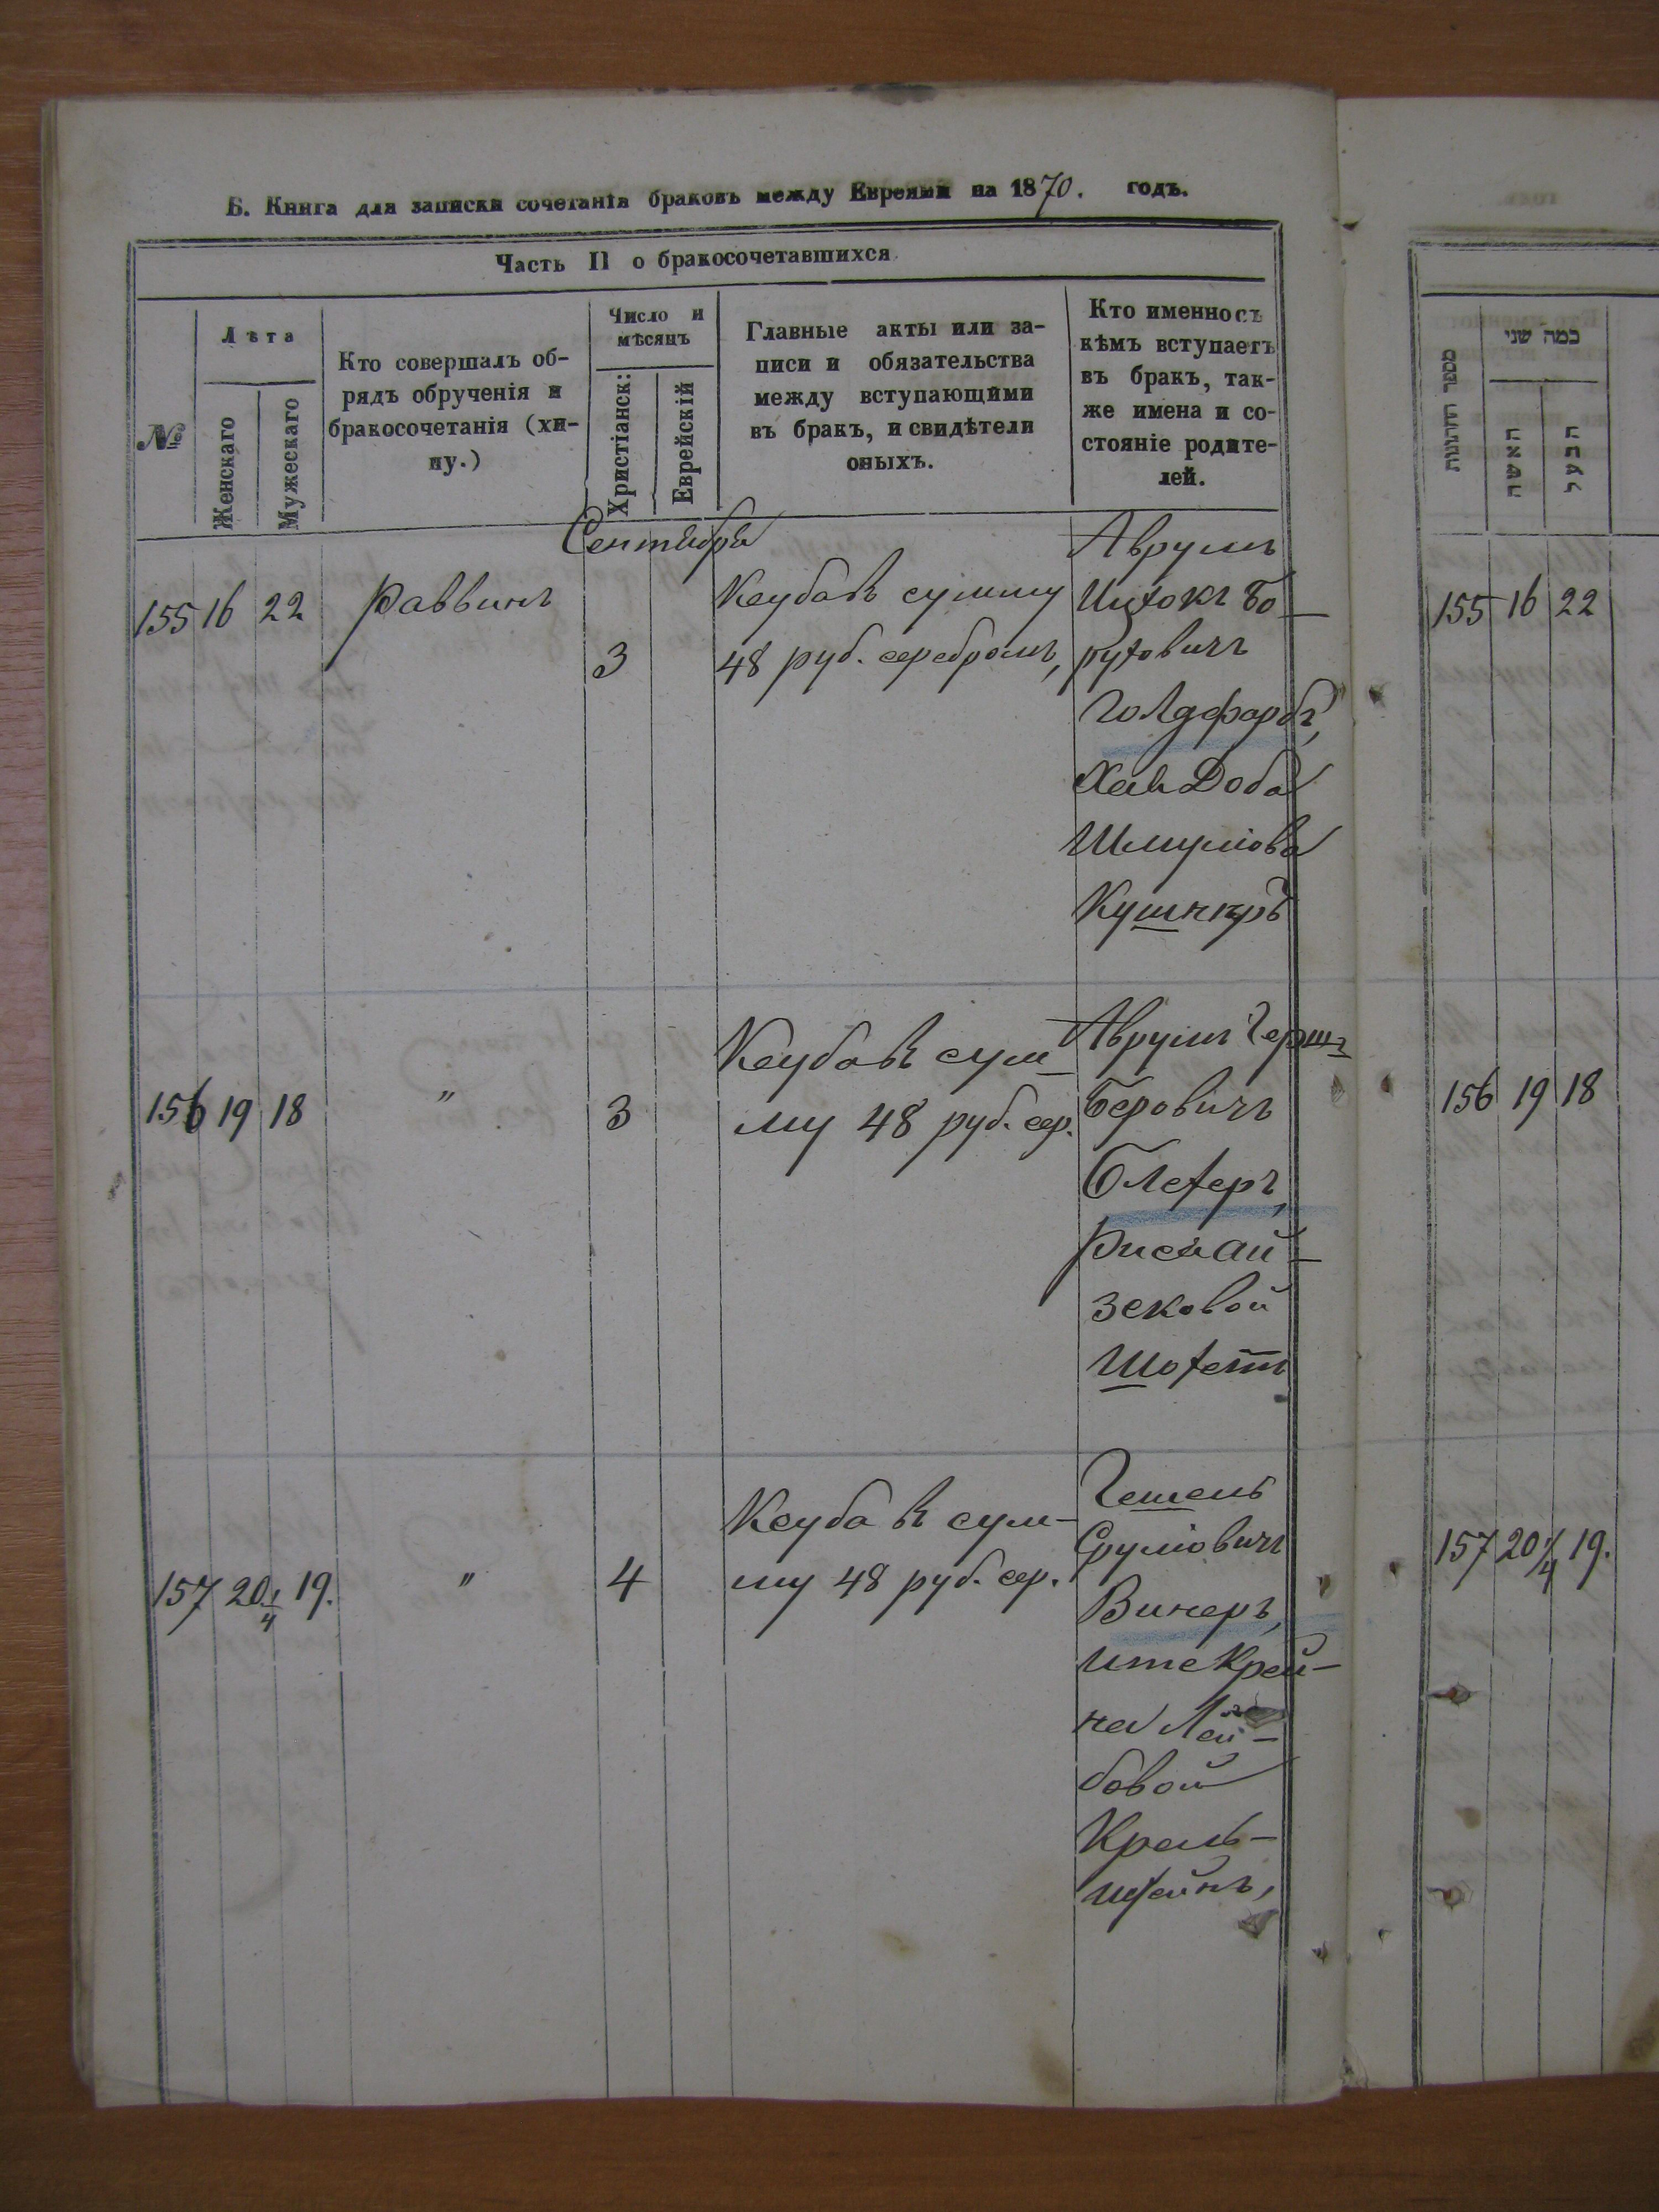 Б. Книга для записки сочетанія браковъ между Евреями на 1870. годъ.
Часть II о бракосочетавшихся
№
Лѣта
Женскаго
Мужескаго
Кто совершалъ об-
рядъ обрученія и
бракосочетанія (хи-
пу.)
Число и
мѣсяцъ
Христіанск:
Еврейскій
Главные акты или за-
писи и обязательства
между вступающими
въ бракъ, и свидѣтели
оныхъ.
Кто именно съ
кѣмъ вступаетъ
въ бракъ, так-
же имена и со-
стояніе родите-
лей.
Сентября
155 16 22 Раввинъ 3
Ксуба въ сумму
48 руб. серебромъ,
Аврумъ
Ицхокъ Бо-
руховичъ
Голдфарбъ,
Хая Доба
Шмуліова
Кушниръ
156 19 18 " 3
Ксуба въ сум-
му 48 руб. сер.
Аврумъ Герш-
Беровичъ
Блехеръ,
Рися Ай-
зековой
Шохетъ
157 20 1/4 19. " 4
Ксуба въ сум-
му 48 руб. сер.
Гешель
Сруліовичъ
Винеръ,
Ите Крей-
на Лей-
бовой
Крель-
штейнъ,
מספר החתונות
כמה שני
האשה
הבעל
155 16 22
156 19 18
157 20 1/4 19.